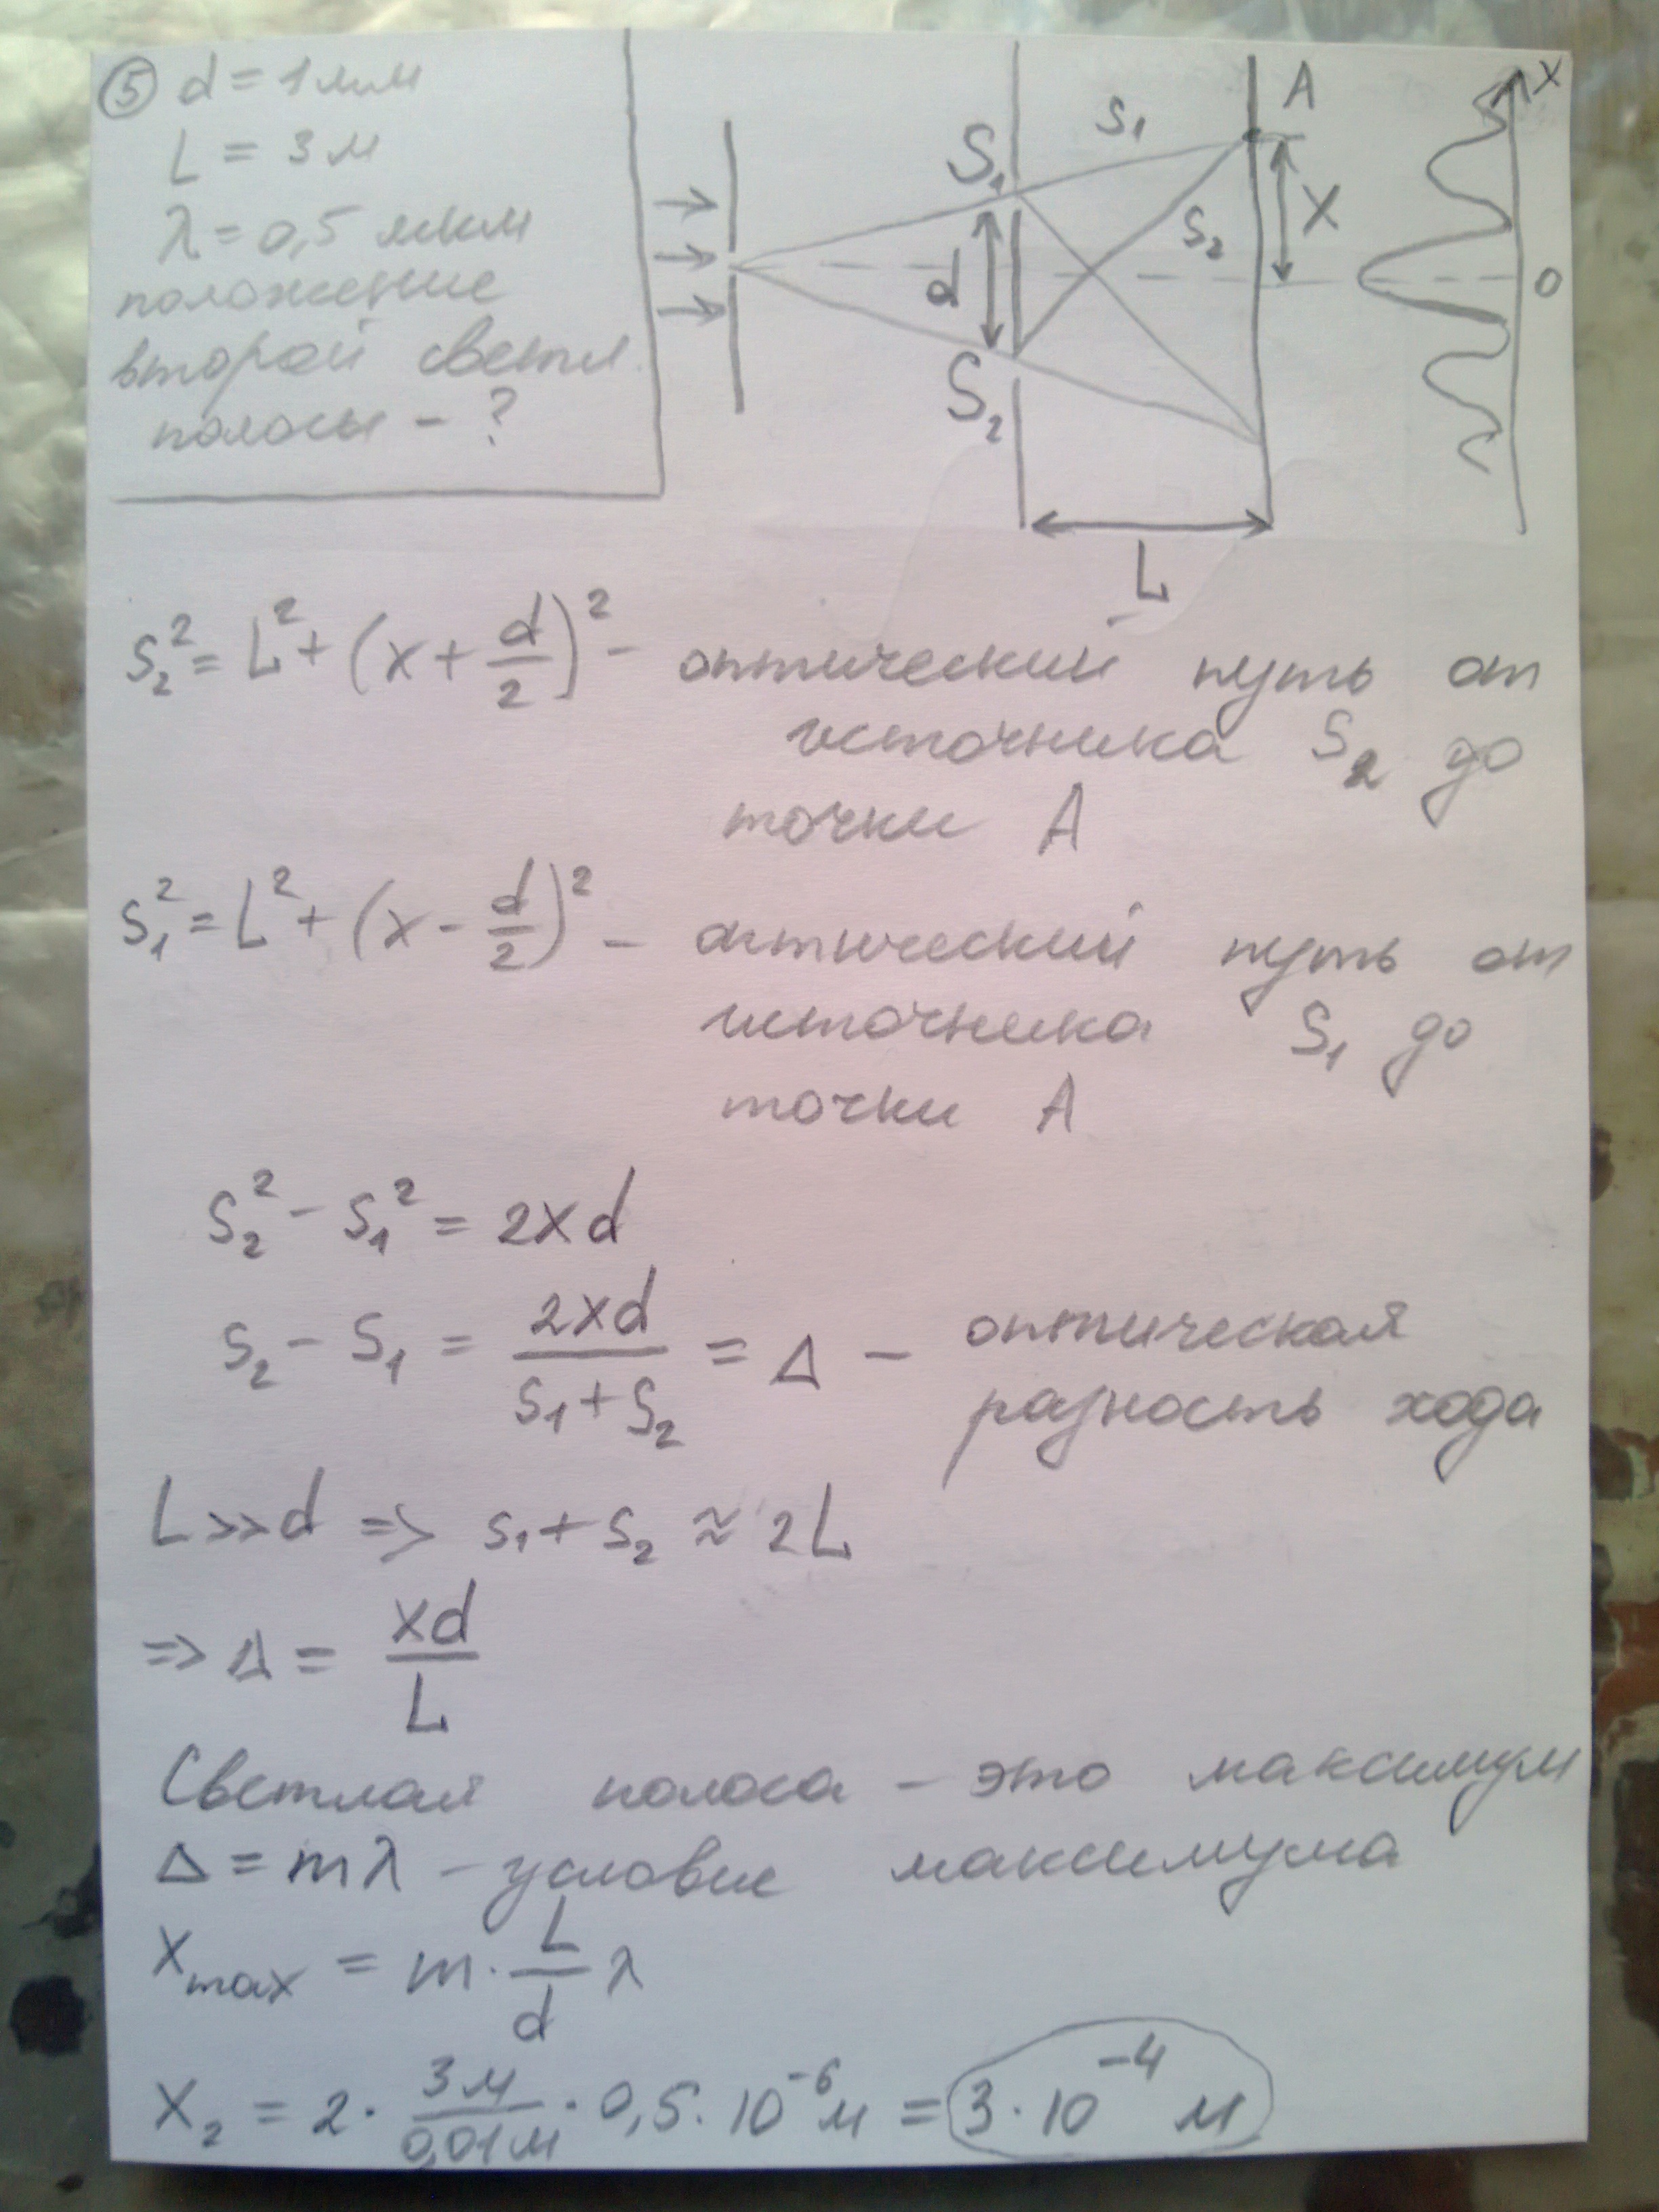 ⑤ d = 1 мм
L = 3 м
λ = 0,5 мкм
положение
второй светл.
полосы - ?
S₁
S₂
d
s₁
s₂
A
X
L
x
0
s₂² = L² + (x + d/2)² - оптический путь от
источника S₂ до
точки A
s₁² = L² + (x - d/2)² - оптический путь от
источника S₁ до
точки A
s₂² - s₁² = 2xd
s₂ - s₁ = 2xd/(s₁ + s₂) = Δ - оптическая
разность хода
L >> d => s₁ + s₂ ≈ 2L
=> Δ = xd/L
Светлая полоса - это максимум
Δ = mλ - условие максимума
x_max = m · L/d λ
x₂ = 2 · 3м/0,01м · 0,5 · 10⁻⁶ м = 3 · 10⁻⁴ м